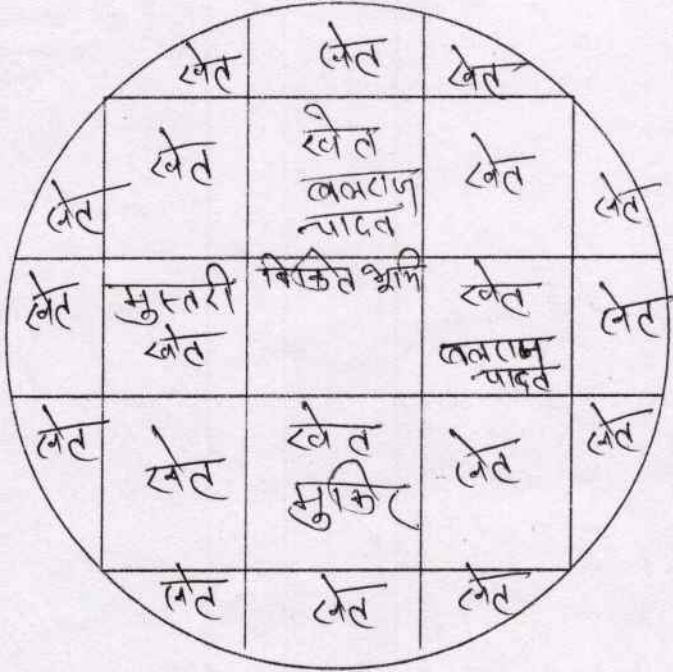 खेत
खेत
खेत
खेत
खेत
बलराज
यादव
खेत
खेत
खेत
खेत
मुस्तरी
खेत
बिक्रित भूमि
खेत
बलराज
यादव
खेत
खेत
खेत
खेत
मुकिर
खेत
खेत
खेत
खेत
खेत